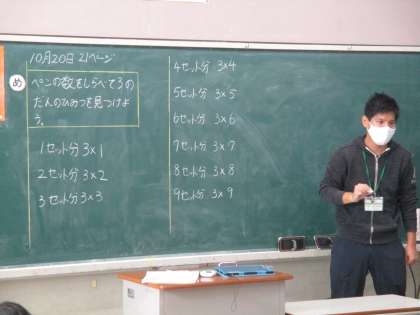 10月20日 21ページ
め
ペンの数をしらべて3の
だんのひみつを見つけよ
う。
1セット分 3×1
2セット分 3×2
3セット分 3×3
4セット分 3×4
5セット分 3×5
6セット分 3×6
7セット分 3×7
8セット分 3×8
9セット分 3×9